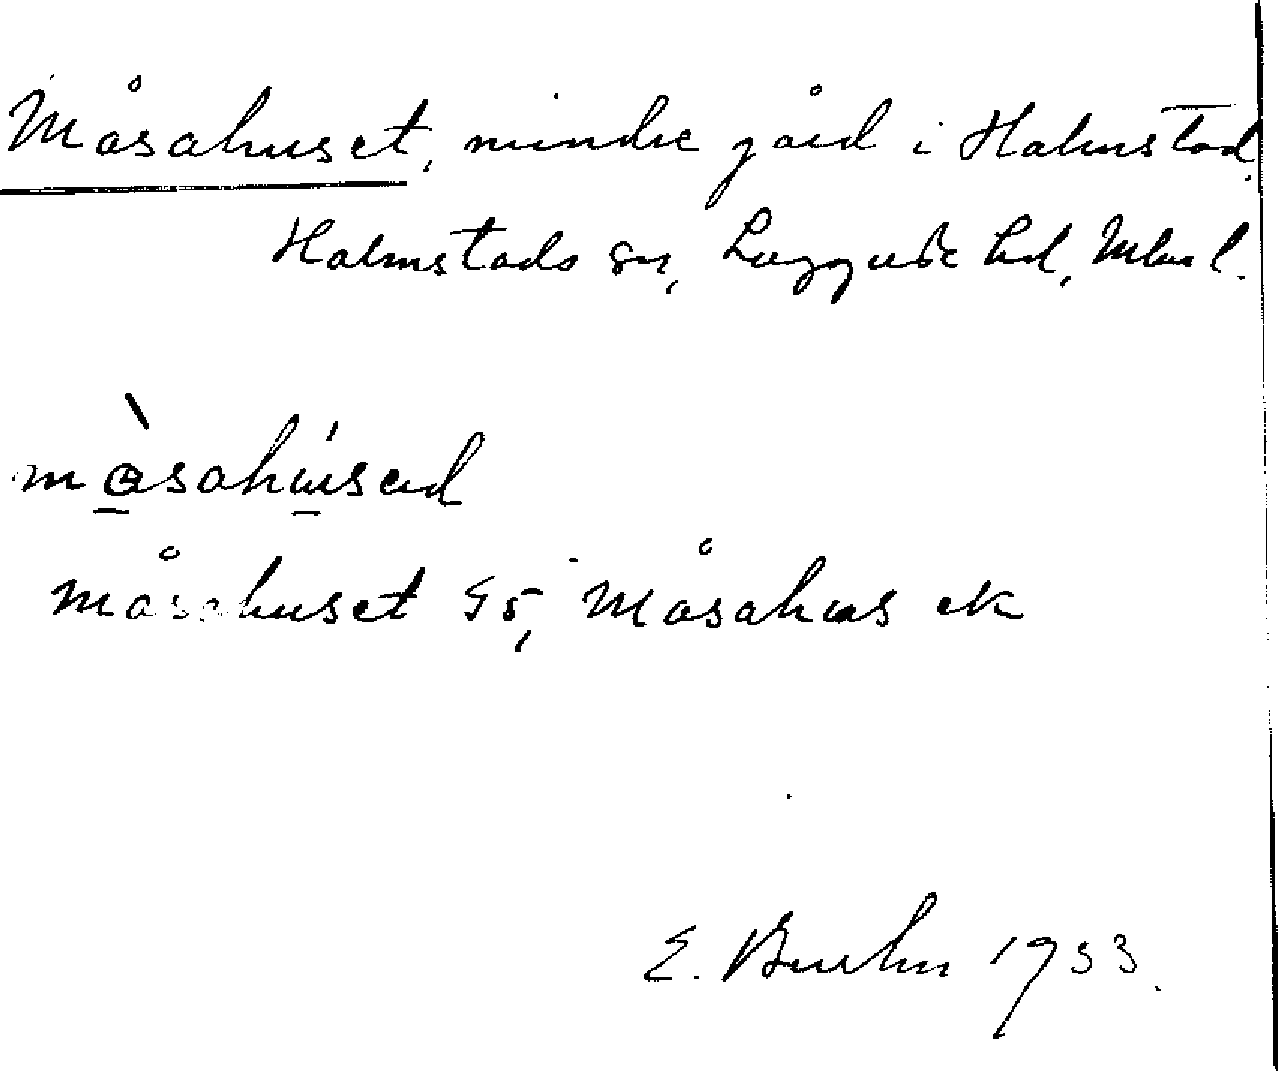 Måsahuset, mindre gård i Halmstad,
Halmstads sn, Luggude hd, Mlm l.
måsahused
Måsahuset Gs, Måsahus ek
E. Bruhn 1933.